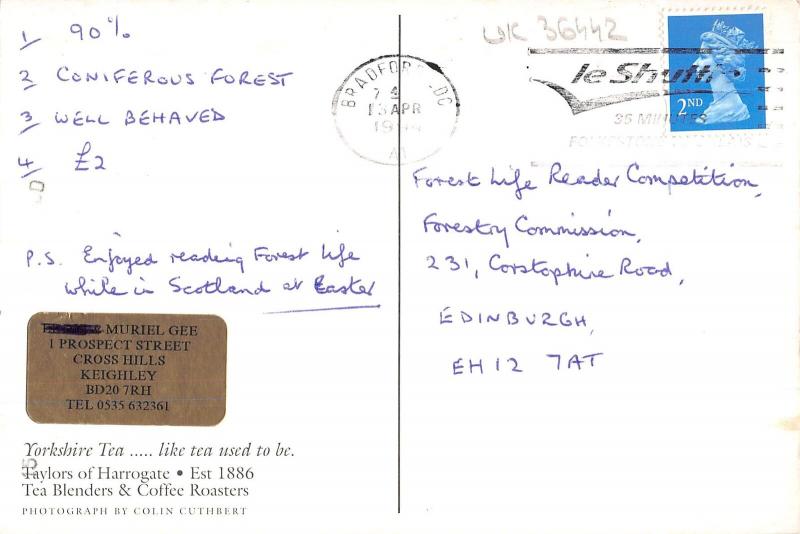 1 90%
2 CONIFEROUS FOREST
3 WELL BEHAVED
4 £2
P.S. Enjoyed reading Forest Life
while in Scotland at Easter
MURIEL GEE
1 PROSPECT STREET
CROSS HILLS
KEIGHLEY
BD20 7RH
TEL 0535 632361
Yorkshire Tea ..... like tea used to be.
Taylors of Harrogate • Est 1886
Tea Blenders & Coffee Roasters
PHOTOGRAPH BY COLIN CUTHBERT
UK 36442
BRADFORD
13 APR
le Shuttle
35 MINUTES
2ND
Forest Life Reader Competition,
Forestry Commission,
231, Corstophine Road,
EDINBURGH,
EH12 7AT